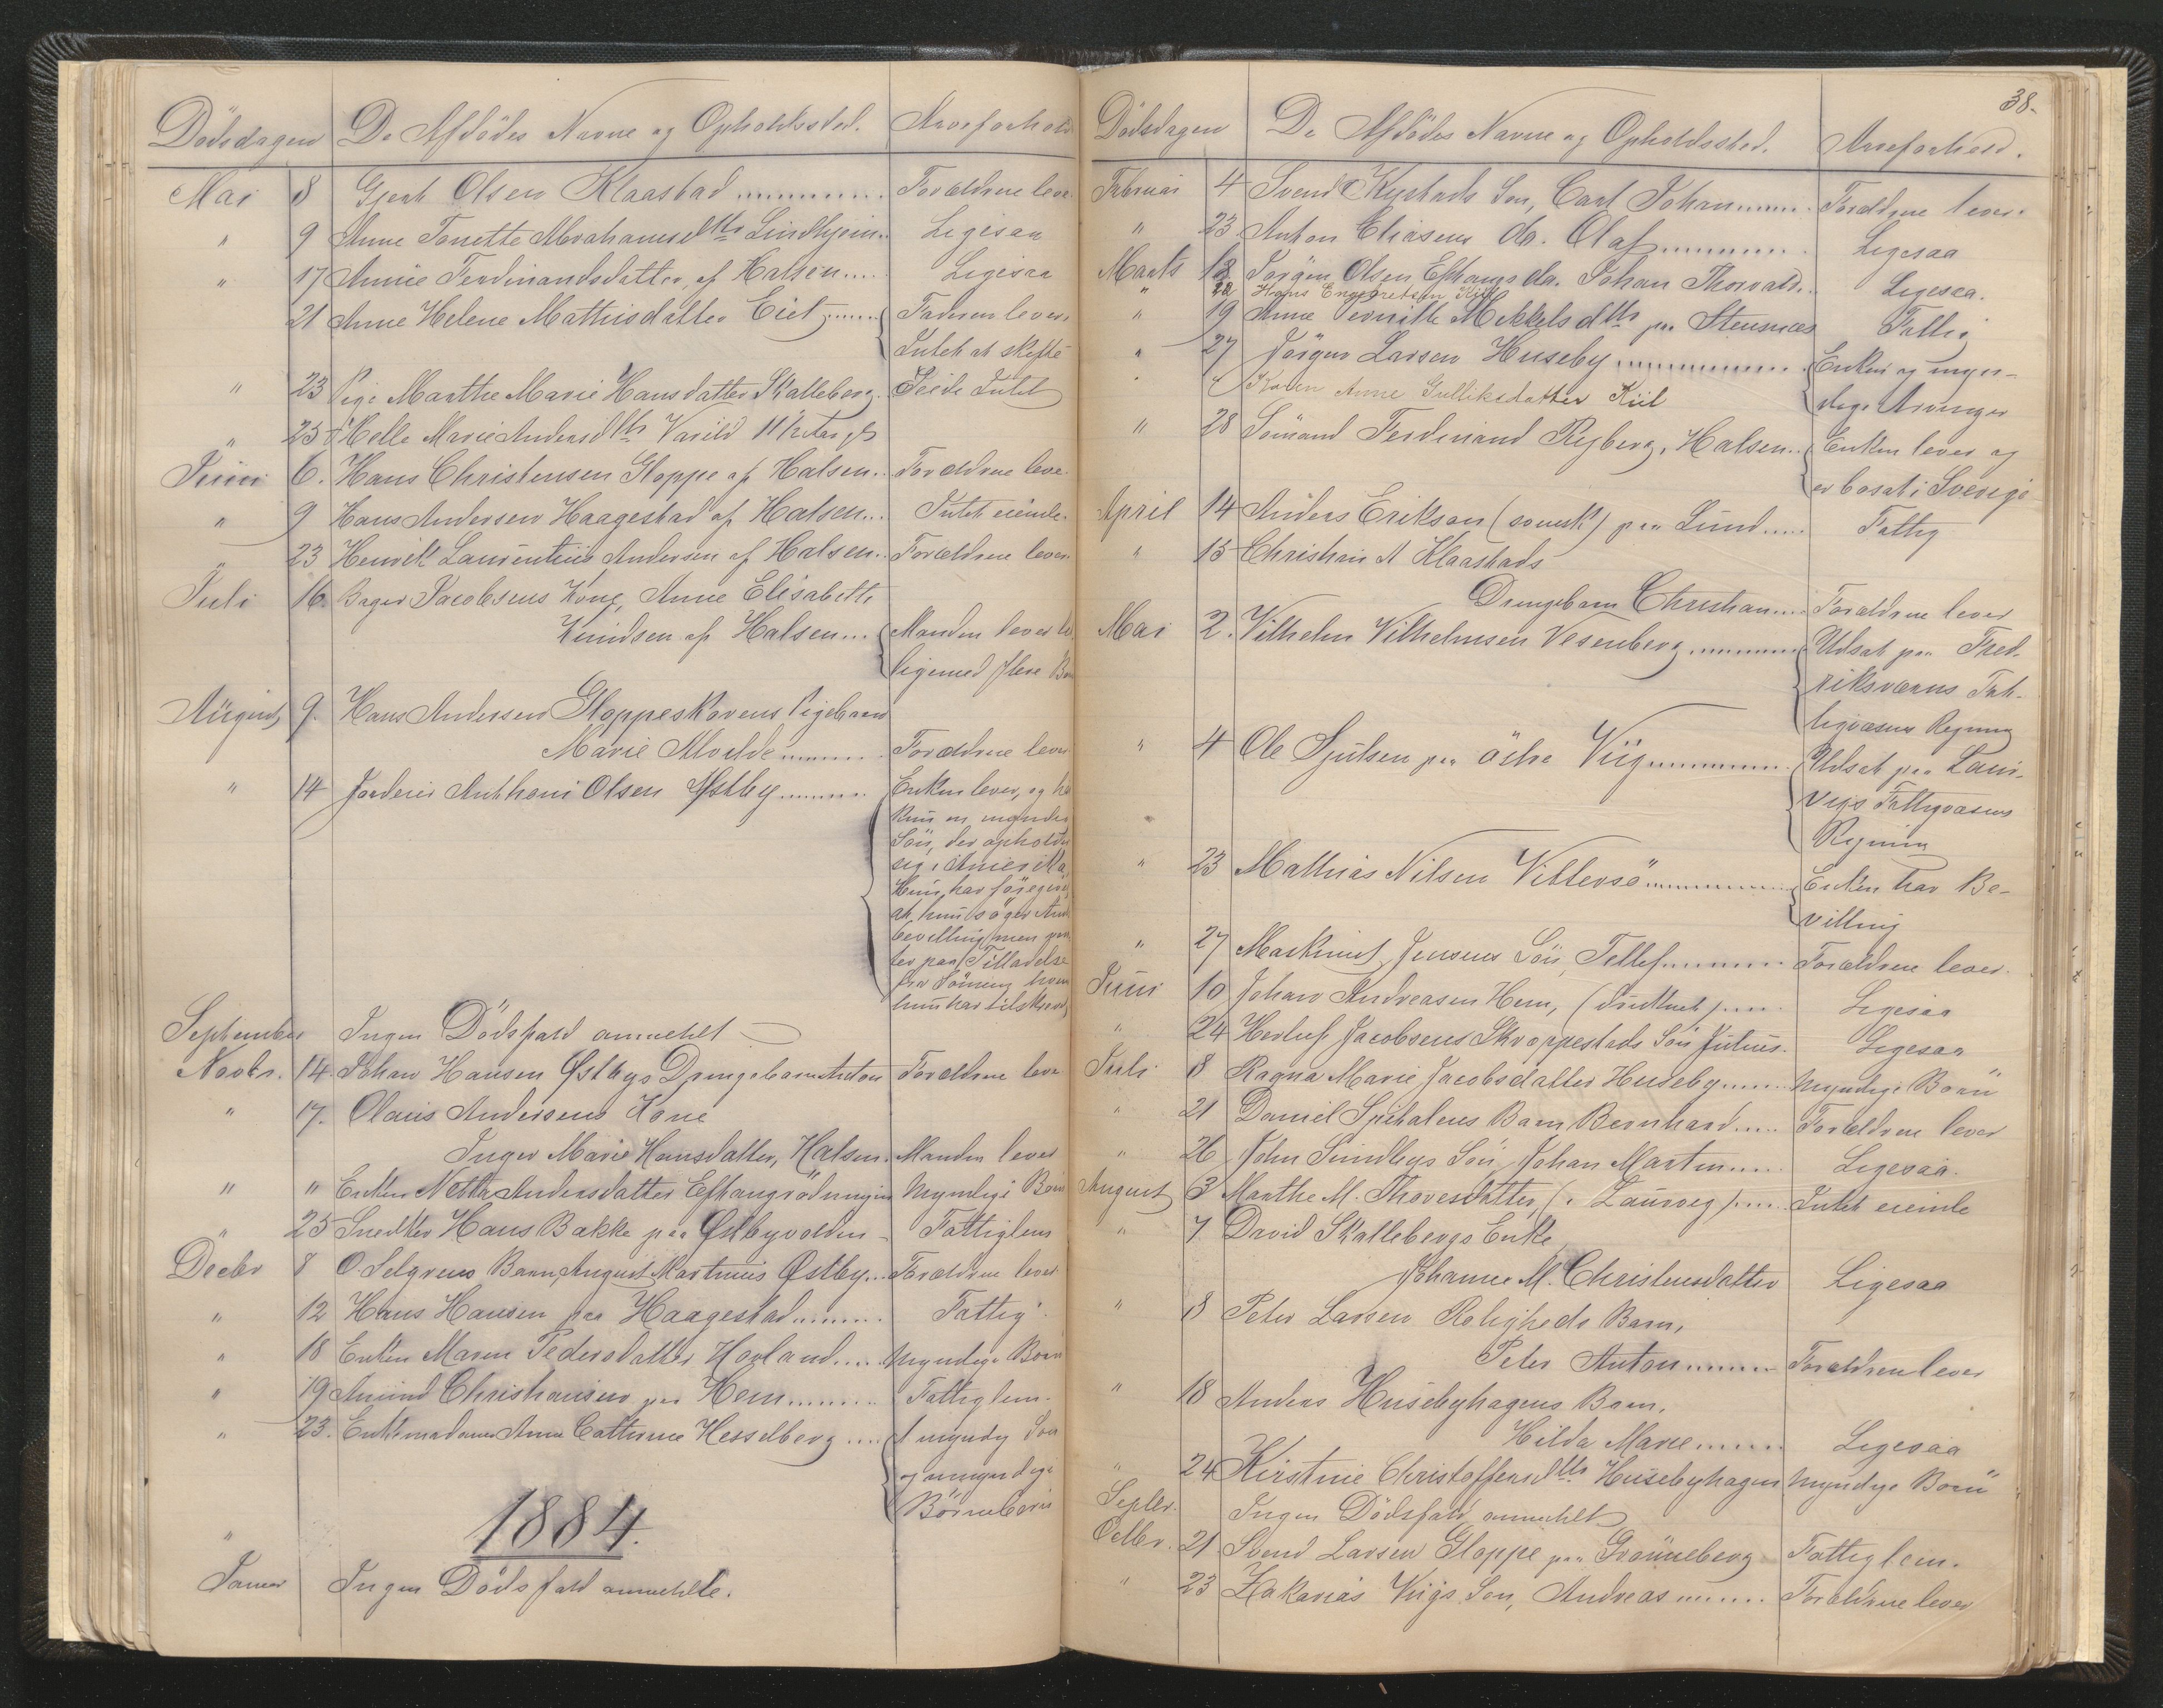 Dödsdagen De Afdödes Navne og Opholdssted. Arveforhold
Mai 8 Gjert Olsen Klaastad Forældrene leve
" 9 Anne Tonette Abrahamsdttr Lindhjem Ligesaa
" 17 Annie Ferdinandsdatter af Halsen Ligesaa
21 Anne Helene Mathisdatter Eiet Faderen lever
Intet at skifte
" 23 Pige Marthe Marie Hansdatter Skalleberg Eiede Intet
" 25 Helle Marie Andersdttr Varild
Juni 6. Hans Christensen Gloppe af Halsen Forældrene leve
" 9 Hans Andersen Haagestad af Halsen Intet eiende
" 23 Henrik Laurentius Andersen af Halsen Forældrene lever
Juli 16. Bager Jacobsens Kone, Anne Elisabeth
Knudsen af Halsen Manden lever
ligemed flere
August 9. Hans Andersen Gloppeskovens Pigebarn
Marie Alvilde Forældrene lever
" 14 Jordeier Anthoni Olsen Østby Enken lever, og
kun en myndig
Sön, der opholder
sig i Amerika
Hun har foregivet
at hun söger
bevilling men
ter paa Tilladelse
fra Sönnen hvem
hun har tilskrevet
September Ingen Dödsfald anmeldt
Novbr. 14. Johan Hansen Østbys Drengebarn Anton Forældrene leve
" 17. Olaus Andersens Kone
Inger Marie Hansdatter, Halsen Manden lever
" " Enken Netta Andersdatter Eftangrödningen Myndige Börn
" 25 Snedker Hans Bakke paa Østbyvolden Fattiglem
Decbr 8 O. Selgrens Barn, August Martinius Østby Forældrene lever
" 12 Hans Hansen paa Haagestad Fattig
" 18 Enken Maren Pedersdatter Hovland Myndige Börn
" 19 Amund Christiansen paa Hem Fattiglem.
" 23. Enkemadame Anne Cathrine Hesselberg 1 myndig Sön
og umyndige
Börnebörn
1884.
"
Januar Ingen Dödsfald anmeldte.
38.
Dödsdagen De Afdödes Navne og Opholdssted. Arveforhold.
Februar 4 Svend Kystads Sön, Carl Johan Forældrene lever.
" 23. Anton Eliasens do. Olaf Ligesaa
Marts 18 Jörgen Olsen Eftangs do. Johan Thorvald Ligesaa.
" 22 Hans Engebretsen Kiil
" 19 Anne Pernille Mikkelsdttr paa Stensnæs Fattig
" 27 Jörgen Larsen Huseby Enken og myn-
" " Karen Anne Gulliksdatter Kiil dige Arvinger
" 28 Sömand Ferdinand Ryberg, Halsen Enken lever og
er bosat i Sverige
April 14 Anders Erikson (svensk) paa Lund Fattig
" 15 Christian A Klaastads
Drengebarn Christian Forældrene lever
Mai 2. Vilhelm Vilhelmsen Vesenberg Udsat paa Fred-
riksværns Fat-
tigvæsens Regning
" 4 Ole Sjulsen paa östre Viig Udsat paa Laur-
vigs Fattigvæsens
Regning
" 23 Mathias Nilsen Vittersö Enken har Be-
villing
" 27 Markmut Jensens Sön, Tellef Forældrene lever.
Juni 10 Johan Andreasen Hem, (druknet) Ligesaa
" 24 Herluf Jacobsens Skroppestads Sön Julius. Ligesaa
Juli 8 Ragna Marie Jacobsdatter Huseby Myndige Börn
" 21 Daniel Spitalens Barn Bernhard Forældrene lever
" 26 John Sundbys Sön, Johan Martin Ligesaa.
August 3 Marthe M. Thoresdatter, (i Laurvig) Intet eiende
" 7 David Skallebergs Enke
Johanne M. Christensdatter Ligesaa
" 8 Peter Larsen Roligheds Barn,
Peter Anton Forældrene lever
" 18 Anders Husebyhagens Barn,
Hilda Marie Ligesaa
" 24 Kirstine Christoffersdttr Husebyhagen Myndige Börn
Septbr. Ingen Dödsfald anmeldt
Octbr. 21 Svend Larsen Gloppe paa Grönneberg Fattiglem.
" 23 Zakarias Viigs Sön, Andreas Forældrene lever